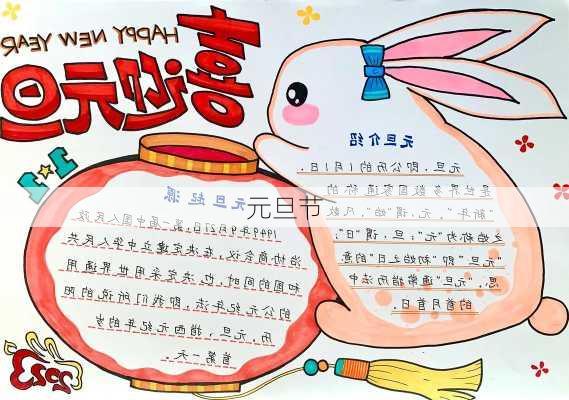 HAPPY NEW YEAR
喜迎元旦
1·1
元旦介绍
元旦，即公历的1月1日，
是世界多数国家通称的
"新年"。元，谓"始"，凡数
之始称为"元"；旦，谓"日"；
"元旦"即"初始之日"的意
思。"元旦"通常指历法中
的首月首日
元旦节
元旦起源
1949年9月27日，第一届中国人民政
治协商会议，在决定建立中华人民共
和国的同时，也决定采用世界通用
的公元纪年法，即我们所说的阳
历。元旦，指西元纪年的岁
首第一天。
2023